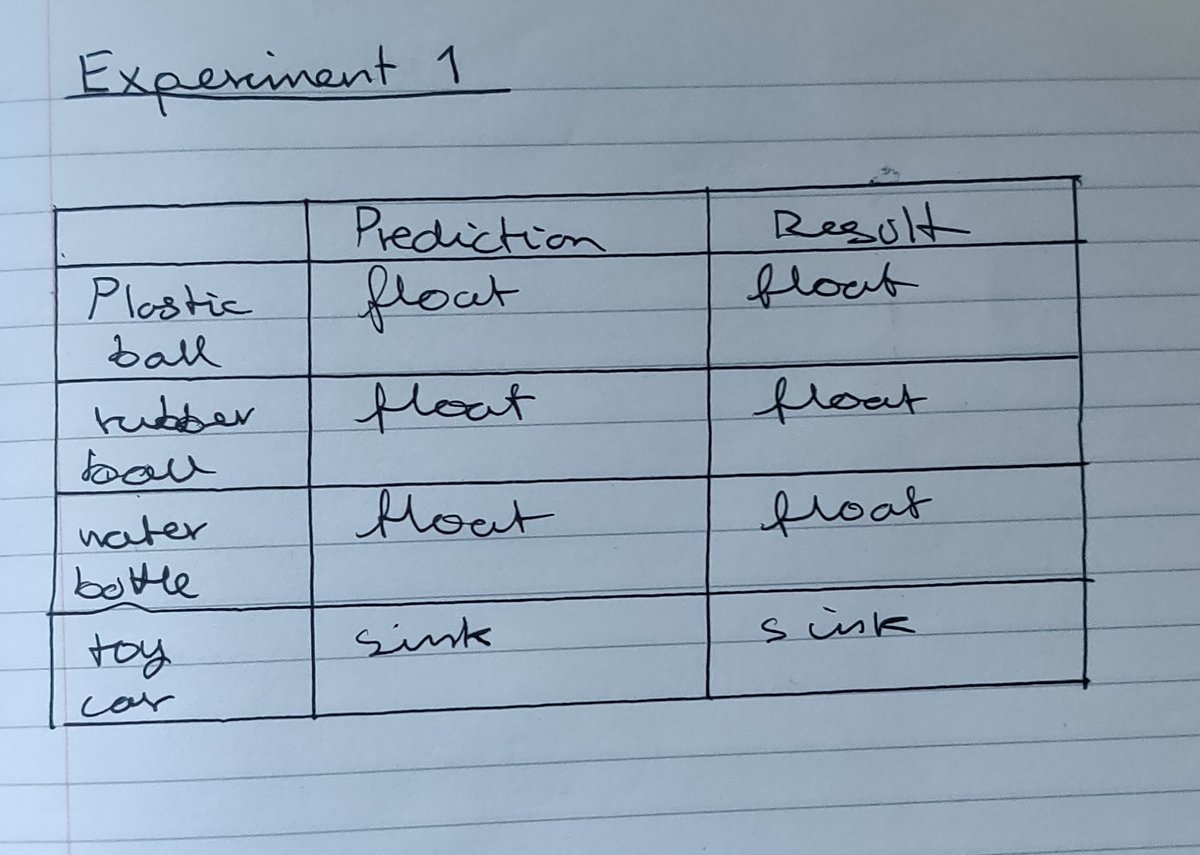 Experiment 1
Prediction Result
Plastic float float
ball
rubber float float
ball
water float float
bottle
toy sink sink
car